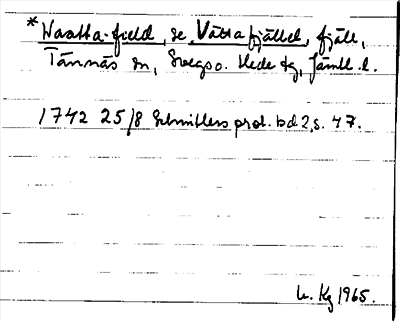 *Waatta-field, se Våttafjället, fjäll,
Tännäs sn, Svegs o. Hede tg, Jämtl. l.
1742 25/8 Schnitlers prot. bd 2, s. 47.
Kg 1965.